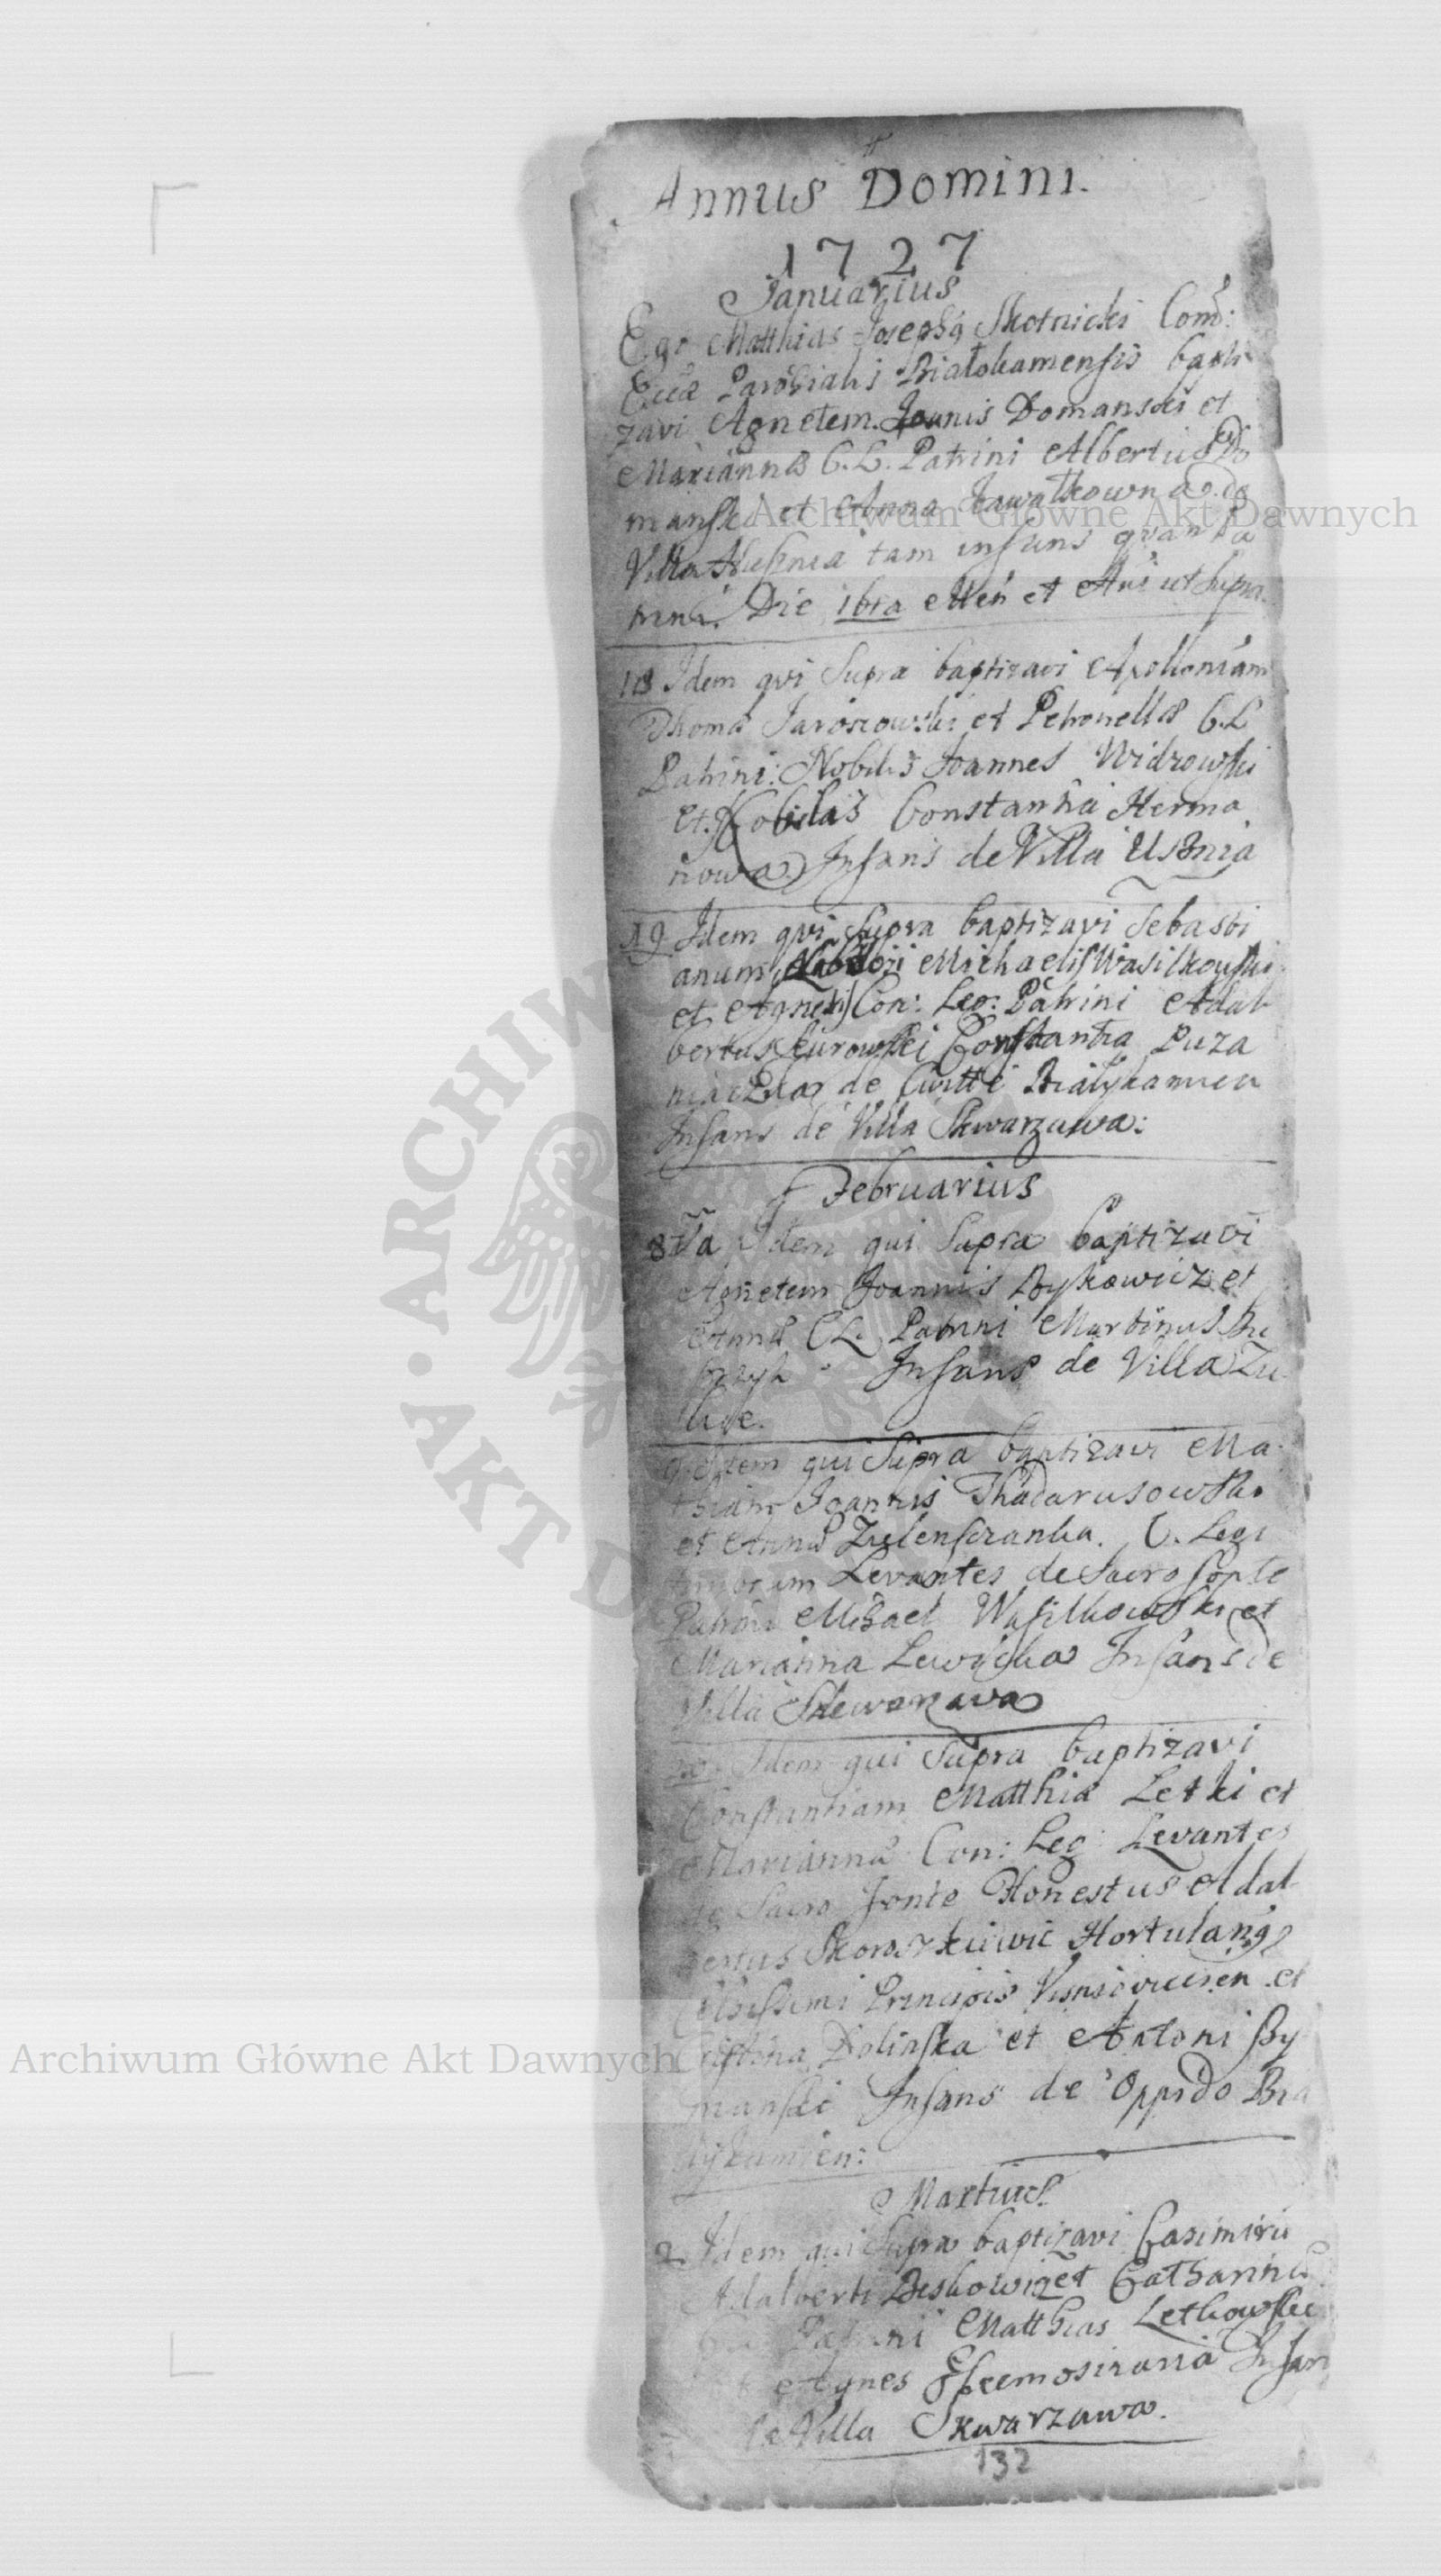 Annus Domini.
1727
Januarius
Ego Matthias Josephq Skotnicki Com:
Eccæ Parohialis Białokamensis bapti
zavi Agnetem Joanis Domanski et
Mariannæ C. L. Patrini Albertus Do
manski et Anna Kawałkowna de
Villa Usznia tam infans quam Pa
trini. Die 16ta Men et Ani ut supra.
18 Idem qvi Supra baptizavi Apolloniam
Thomæ Jaroszowski et Petronellæ C. L
Patrini: Nobilis Joannes Widrowski
et Nobilis Constantia Herma
nowa Infans de Villa Usznia
19 Idem qvi Supra baptizavi Sebasti
anum Michaelis Wasilkowski
et Agnetis Con: Leg: Patrini Adal
bertus Kurowski Constantia Puza
niaczka de Białykamien
Infans de Villa Skwarzawa:
Februarius
8va Idem qui Supra baptizavi
Agnetem Joannis Bykowicz et
Annæ C L. Patrini Martinus
Infans de Villa Zu
lice.
9. Idem qui Supra baptizavi Ma
thiam Joannis Thadarusowski
et Annæ Zielenscianka. C. Legi
timorum Levantes de Sacro fonte
Patrini Michael Wasilkowski et
Marianna Lewicka Infans de
Villa Skwarzawa
Idem qui Supra baptizavi
Constantiam Matthiæ Letki et
Mariannæ Con: Leg: Levantes
de Sacro fonte Honestus Adal
bertus Hortulanq
Celsissimi Principis Visnioviecien et
Dolinska et Antoni Szy
manski Infans de Oppido Bia
łykamien:
Martius
2 Idem qui Supra baptizavi Casimirū
Adalberti Beskowicz et Catharinæ
Patrini Matthias Letkowski
et Agnes Infans
de Villa Skwarzawa.
132
Archiwum Główne Akt Dawnych
Archiwum Główne Akt Dawnych